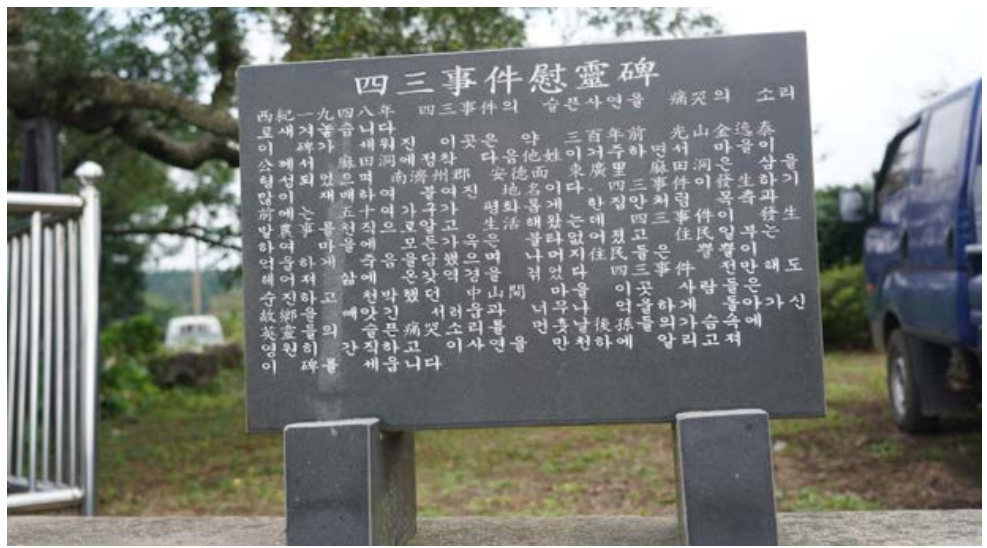 四三事件慰靈碑
西紀一九四八年 四三事件의 슬픈사연을 痛哭의 소리
로새겨놓습니다
이 碑가 세워진 이곳은 약 三百年前 光山 金逸泰
공께서 麻田洞에정착 다음他姓이거주하면서 마을이
형성되었으며 南濟州郡 安德面 東廣里 麻田洞은 삼을
많이 재배하여 불여진 地名이다. 四三事件이 發生하기
前에는 五十여 가구가 평화롭게 한집안처럼 목축과
발農事를 천직으로알고 生活해왔는데 四三事件이發生
하여 마을에 모든가옥은 불타없어졌고 住民 부는
억울하게 죽음을당했으며 나머지 住民들은 뿔뿔이
헤어져 삶에온갖역경을 겪었다 四三事件 전만해도
순진하고 천박했던 中山間 마을 이곳 사람들은
故鄕을 빼앗긴 서러움과 너무나 억울하게 돌아가신
英靈들의 슬픈痛哭소리를 먼훗날後孫들의가슴속에
영원히 간직하고 이사연을 만천하에 알리고져
이 碑를 세웁니다